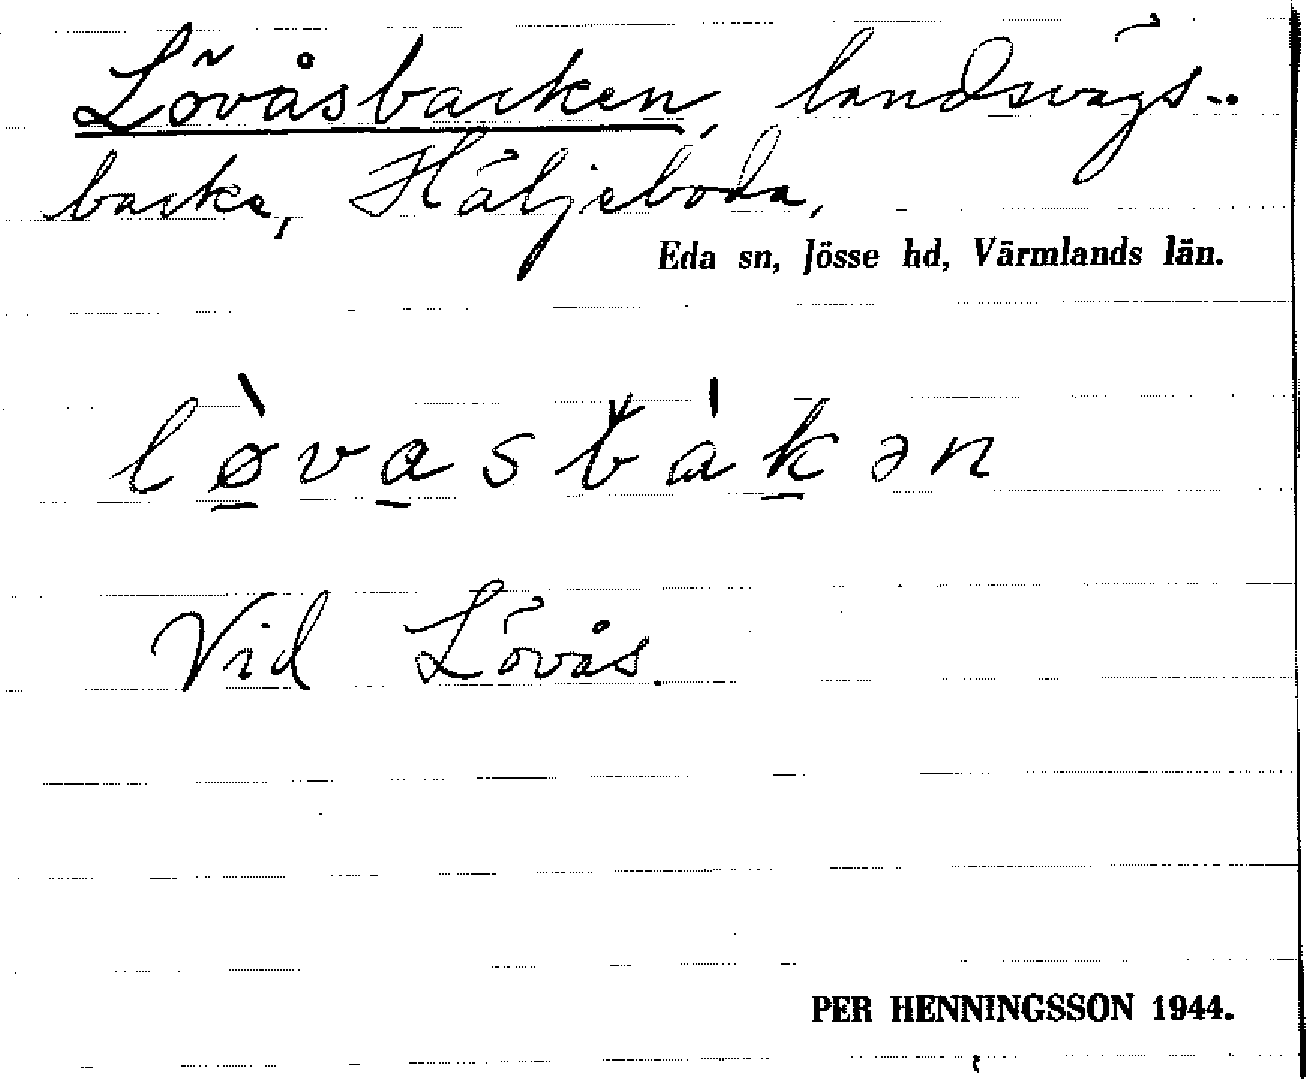 Lövåsbacken, landsvägs-
backe, Häljeboda,
Eda sn, Jösse hd, Värmlands län.
lø̠̀va̠sbák̠ən
Vid Lövås.
PER HENNINGSSON 1944.